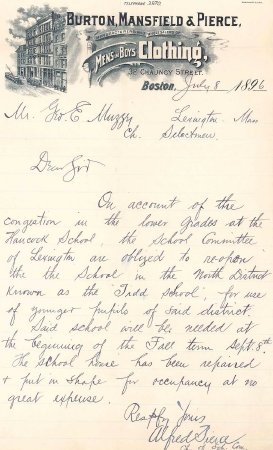 TELEPHONE 3970
BURTON, MANSFIELD & PIERCE,
MEN'S AND BOYS Clothing,
CHAUNCY STREET.
Boston, July 8 1896
Mr. Geo. E. Muzzy Lexington Mass
Ch. Selectmen
Dear Sir
On account of the
congestion in the lower grades at the
Hancock School, the School Committee
of Lexington are obliged to reopen
the the School in the North District
known as the Tidd school, for use
of younger pupils of said district.
Said school will be needed at
the beginning of the Fall term Sept. 8th.
The school house has been repaired
& put in shape for occupancy at no
great expense.
Respfy Yours
Alfred Pierce
Ch. of Sch. Com.